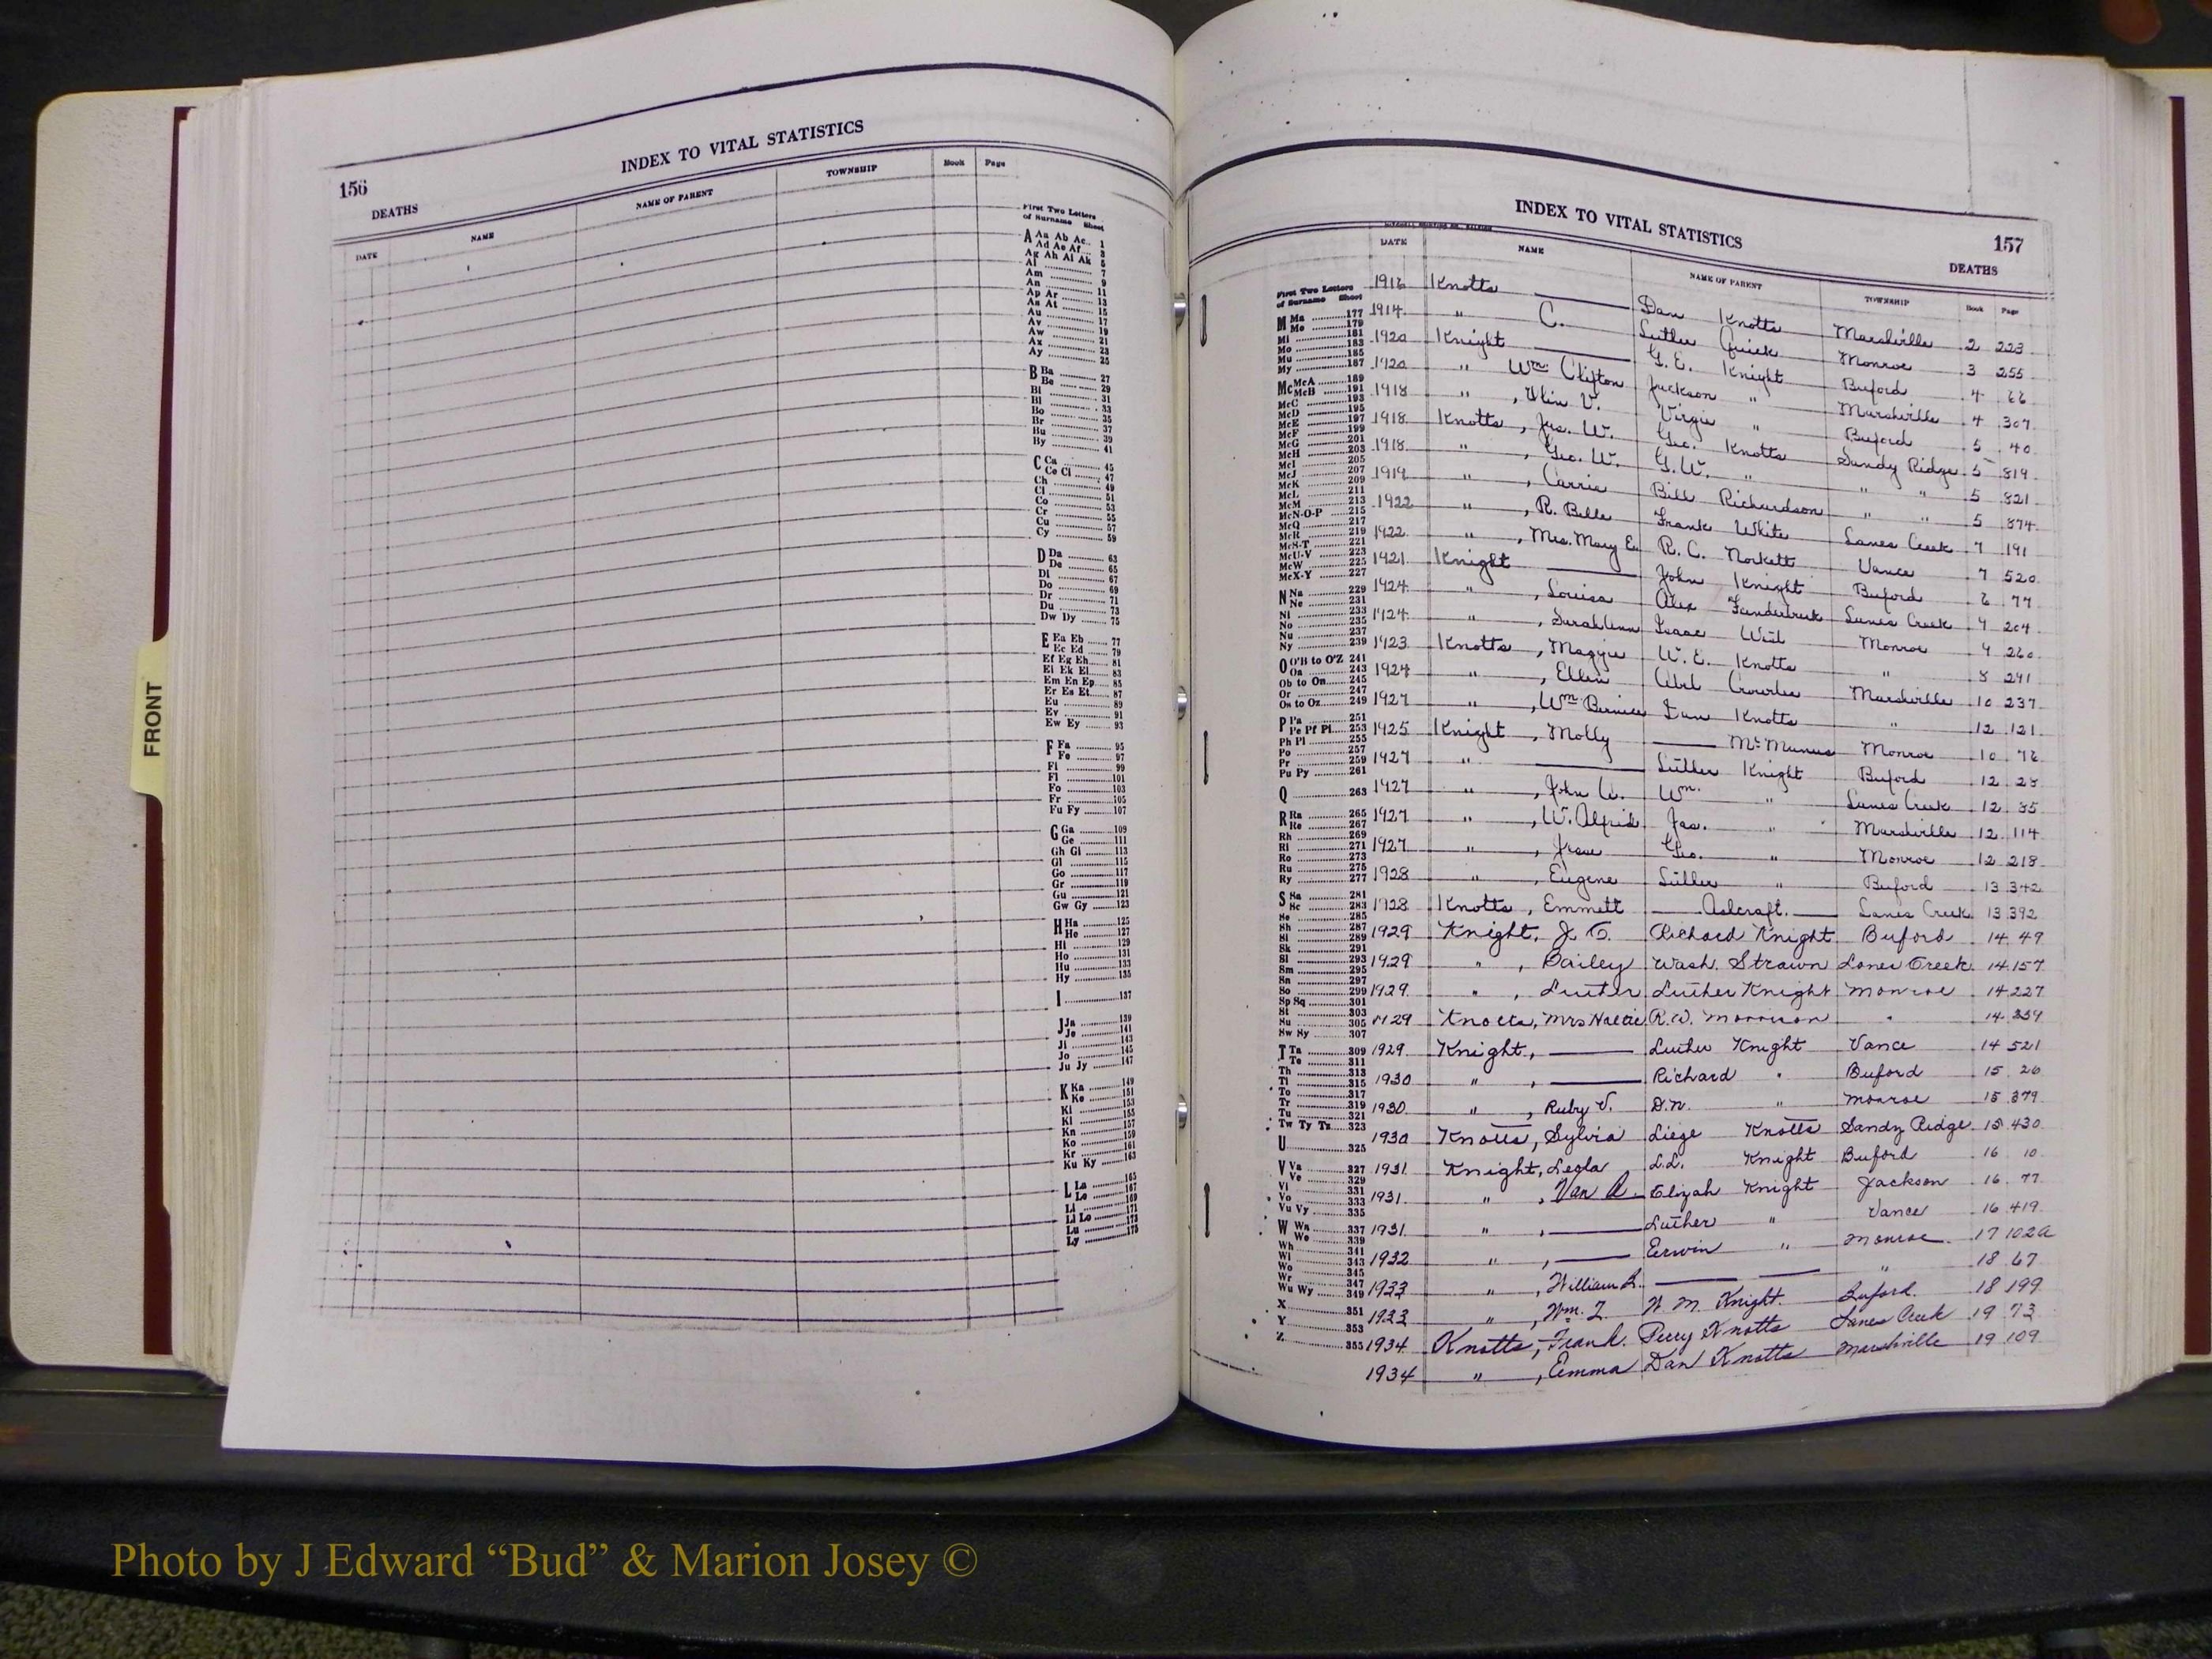 INDEX TO VITAL STATISTICS
156
DEATHS
DATE NAME NAME OF PARENT TOWNSHIP Book Page
First Two Letters
of Surname Sheet
A Aa Ab Ac 1
Ad Ae Af 3
Ag Ah Ai Ak 5
Al 7
Am 9
An 11
Ap Ar 13
As At 15
Au 17
Av 19
Aw 21
Ax 23
Ay 25
B Ba 27
Be 29
Bi 31
Bl 33
Bo 35
Br 37
Bu 39
By 41
C Ca 45
Ce Ci 47
Ch 49
Cl 51
Co 53
Cr 55
Cu 57
Cy 59
D Da 63
De 65
Di 67
Do 69
Dr 71
Du 73
Dw Dy 75
E Ea Eb 77
Ec Ed 79
Ef Eg Eh 81
Ei Ek El 83
Em En Ep 85
Er Es Et 87
Eu 89
Ev 91
Ew Ey 93
F Fa 95
Fe 97
Fi 99
Fl 101
Fo 103
Fr 105
Fu Fy 107
G Ga 109
Ge 111
Gh Gi 113
Gl 115
Go 117
Gr 119
Gu 121
Gw Gy 123
H Ha 125
He 127
Hi 129
Ho 131
Hu 133
Hy 135
I 137
J Ja 139
Je 141
Ji 143
Jo 145
Ju Jy 147
K Ka 149
Ke 151
Ki 153
Kl 155
Kn 157
Ko 159
Kr 161
Ku Ky 163
L La 165
Le 167
Li 169
Ll Lo 171
Lu 173
Ly 175
FRONT
INDEX TO VITAL STATISTICS
157
DEATHS
DATE NAME NAME OF PARENT TOWNSHIP Book Page
First Two Letters
of Surname Sheet
M Ma 177
Me 179
Mi 181
Mo 183
Mu 185
My 187
Mc McA 189
McB 191
McC 193
McD 195
McE 197
McF 199
McG 201
McH 203
McI 205
McJ 207
McK 209
McL 211
McM 213
McN-O-P 215
McQ 217
McR 219
McS-T 221
McU-V 223
McW 225
McX-Y 227
N Na 229
Ne 231
Ni 233
No 235
Nu 237
Ny 239
O O'B to O'Z 241
Oa 243
Ob to On 245
Or 247
Os to Oz 249
P Pa 251
Pe Pf Pi 253
Ph Pl 255
Po 257
Pr 259
Pu Py 261
Q 263
R Ra 265
Re 267
Rh 269
Ri 271
Ro 273
Ru 275
Ry 277
S Sa 281
Sc 283
Se 285
Sh 287
Si 289
Sk 291
Sl 293
Sm 295
Sn 297
So 299
Sp Sq 301
St 303
Su 305
Sw Sy 307
T Ta 309
Te 311
Th 313
Ti 315
To 317
Tr 319
Tu 321
Tw Ty Tz 323
U 325
V Va 327
Ve 329
Vi 331
Vo 333
Vu Vy 335
W Wa 337
We 339
Wh 341
Wi 343
Wo 345
Wr 347
Wu Wy 349
X 351
Y 353
Z 355
1916 Knotts —— Dan Knotts Marshville 2 223
1914 " C. Luther Quick Monroe 3 255
1920 Knight —— G. E. Knight Buford 4 66
1920 " Wm. Clifton Jackson " Marshville 4 307
1918 " , V. Virgie " Buford 5 40
1918 Knotts, Jas. W. Geo. Knotts Sandy Ridge 5 819
1918 " , Geo. W. G. W. " " " 5 821
1919 " , Carrie Bill Richardson " " 5 874
1922 " , R. Belle Frank White Lanes Creek 7 191
1922 " , Mrs. Mary E. R. C. Norkett Vance 7 520
1921 Knight —— John Knight Buford 6 77
1924 " , Louisa Alex Funderburk Lanes Creek 9 204
1924 " , Sarah Ann Isaac Monroe 9 260
1923 Knotts, Maggie W. E. Knotts " 8 291
1924 " , Ellen Abel Crowder Marshville 10 237
1927 " , Wm Bernice Dan Knotts " 12 121
1925 Knight, Molly —— McManus Monroe 10 76
1927 " —— Luther Knight Buford 12 28
1927 " , John W. Wm. " Lanes Creek 12 35
1927 " , W. Alfred Jas. " Marshville 12 114
1927 " , Jesse Geo. " Monroe 12 218
1928 " , Eugene Luther " Buford 13 342
1928 Knotts, Emmett —— Ashcraft —— Lanes Creek 13 392
1929 Knight, J. C. Richard Knight Buford 14 49
1929 " , Bailey Wash. Strawn Lanes Creek 14 157
1929 " , Luther Luther Knight Monroe 14 227
1929 Knotts, Mrs Hattie R. W. Morrison " 14 339
1929 Knight, —— Luther Knight Vance 14 521
1930 " , —— Richard " Buford 15 26
1930 " , Ruby V. D. N. " Monroe 15 379
1930 Knotts, Sylvia Liege Knotts Sandy Ridge 15 430
1931 Knight, Legla L. L. Knight Buford 16 10
1931 " , Van A. Elizah Knight Jackson 16 77
1931 " , —— Luther " Vance 16 419
1932 " , —— Erwin " Monroe 17 102a
1933 " , William L. —— —— " 18 67
1933 " , Wm. T. W. M. Knight Buford 18 199
1934 Knotts, Frank Perry Knotts Lanes Creek 19 73
1934 " , Emma Dan Knotts Marshville 19 109
Photo by J Edward “Bud” & Marion Josey ©